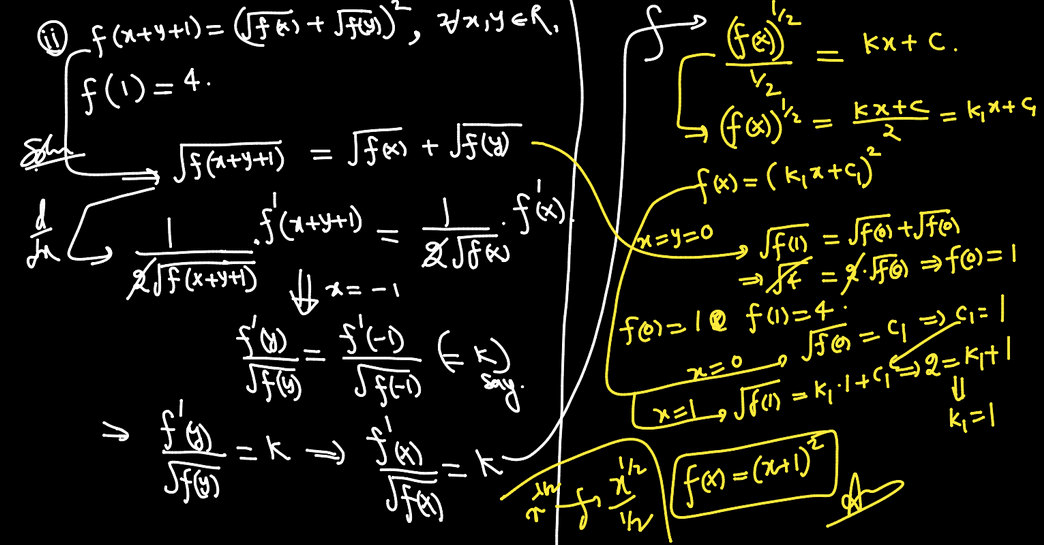 (ii) f(x+y+1) = (√f(x) + √f(y))², ∀ x,y ∈ R,
f(1) = 4.
Soln
√f(x+y+1) = √f(x) + √f(y)
d/dx
1/(2√f(x+y+1)) · f'(x+y+1) = 1/(2√f(x)) · f'(x).
⇓ x = -1
f'(y)/√f(y) = f'(-1)/√f(-1) (= k) say.
⇒ f'(y)/√f(y) = k ⇒ f'(x)/√f(x) = k
∫ → (f(x))^1/2 / 1/2 = kx + c.
→ (f(x))^1/2 = (kx+c)/2 = k₁x+c₁
f(x) = (k₁x+c₁)²
x=y=0 → √f(1) = √f(0) + √f(0)
⇒ √4 = 2·√f(0) ⇒ f(0) = 1
f(0) = 1 & f(1) = 4.
x=0 → √f(0) = c₁ ⇒ c₁ = 1
x=1 → √f(1) = k₁·1+c₁ ⇒ 2 = k₁+1
⇓
k₁=1
∫ x^1/2 / 1/2
f(x) = (x+1)²